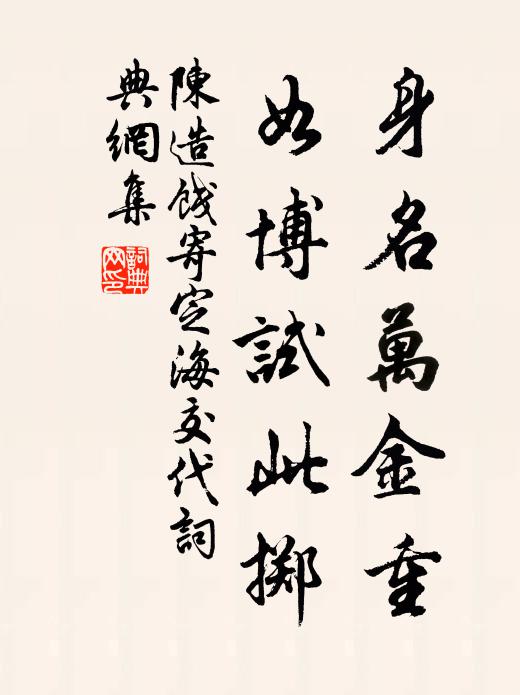 身名萬金重
如博試此擲
陳造餞寄定海交代詞
典網集
詞典網印